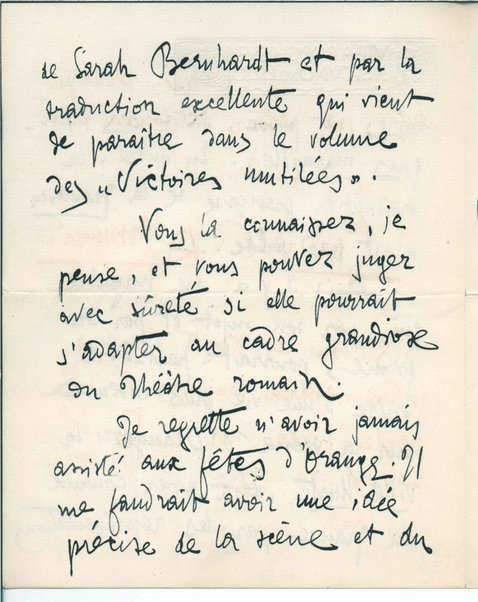 de Sarah Bernhardt et par la
traduction excellente qui vient
de paraître dans le volume
des "Victoires mutilées".
Vous la connaissez, je
pense, et vous pouvez juger
avec sûreté si elle pourrait
s'adapter au cadre grandiose
du théâtre romain.
Je regrette n'avoir jamais
assisté aux fêtes d'Orange. Il
me faudrait avoir une idée
précise de la scène et du